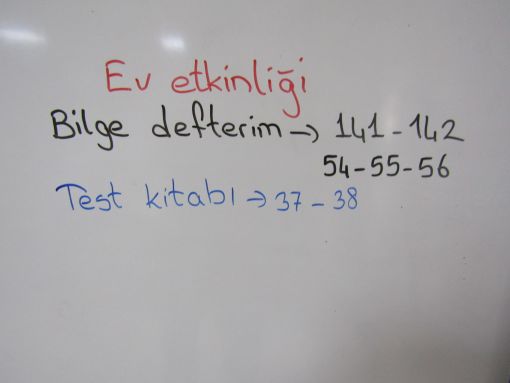 Ev etkinliği
Bilge defterim → 141 - 142
54-55-56
Test kitabı → 37 - 38